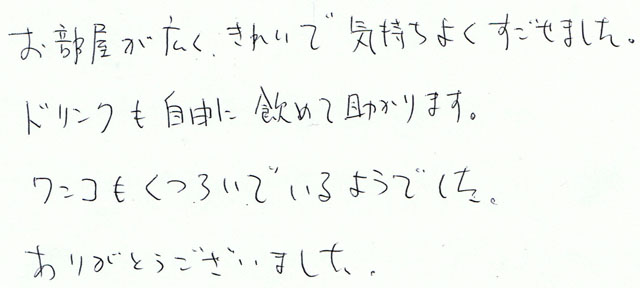 お部屋が広く、きれいで気持ちよくすごせました。
ドリンクも自由に飲めて助かります。
ワンコもくつろいでいるようでした。
ありがとうございました。